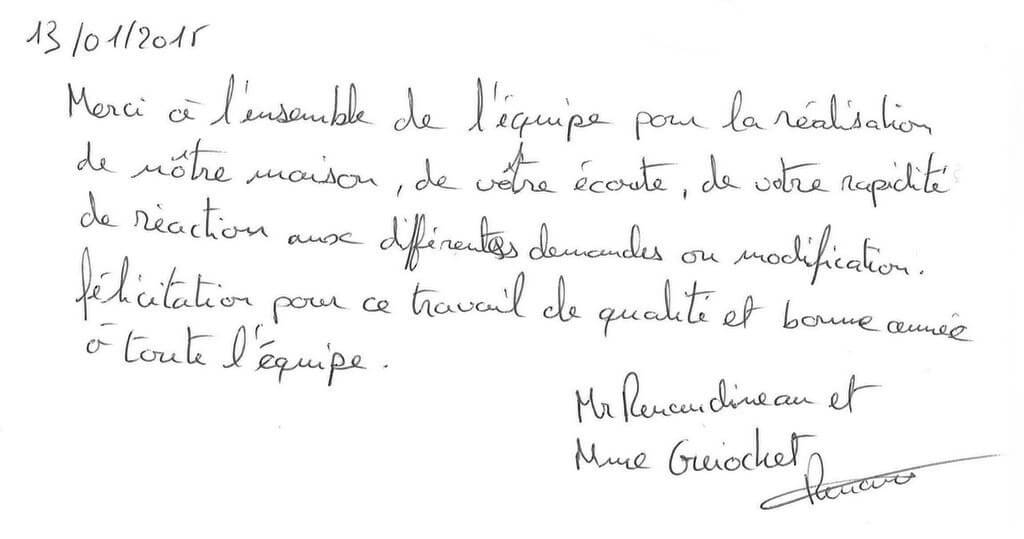 13/01/2015
Merci à l'ensemble de l'équipe pour la réalisation
de nôtre maison, de vôtre écoute, de votre rapidité
de réaction aux différentes demandes ou modification.
félicitation pour ce travail de qualité et bonne année
à toute l'équipe.
Mr Renaudineau et
Mme Guiochet